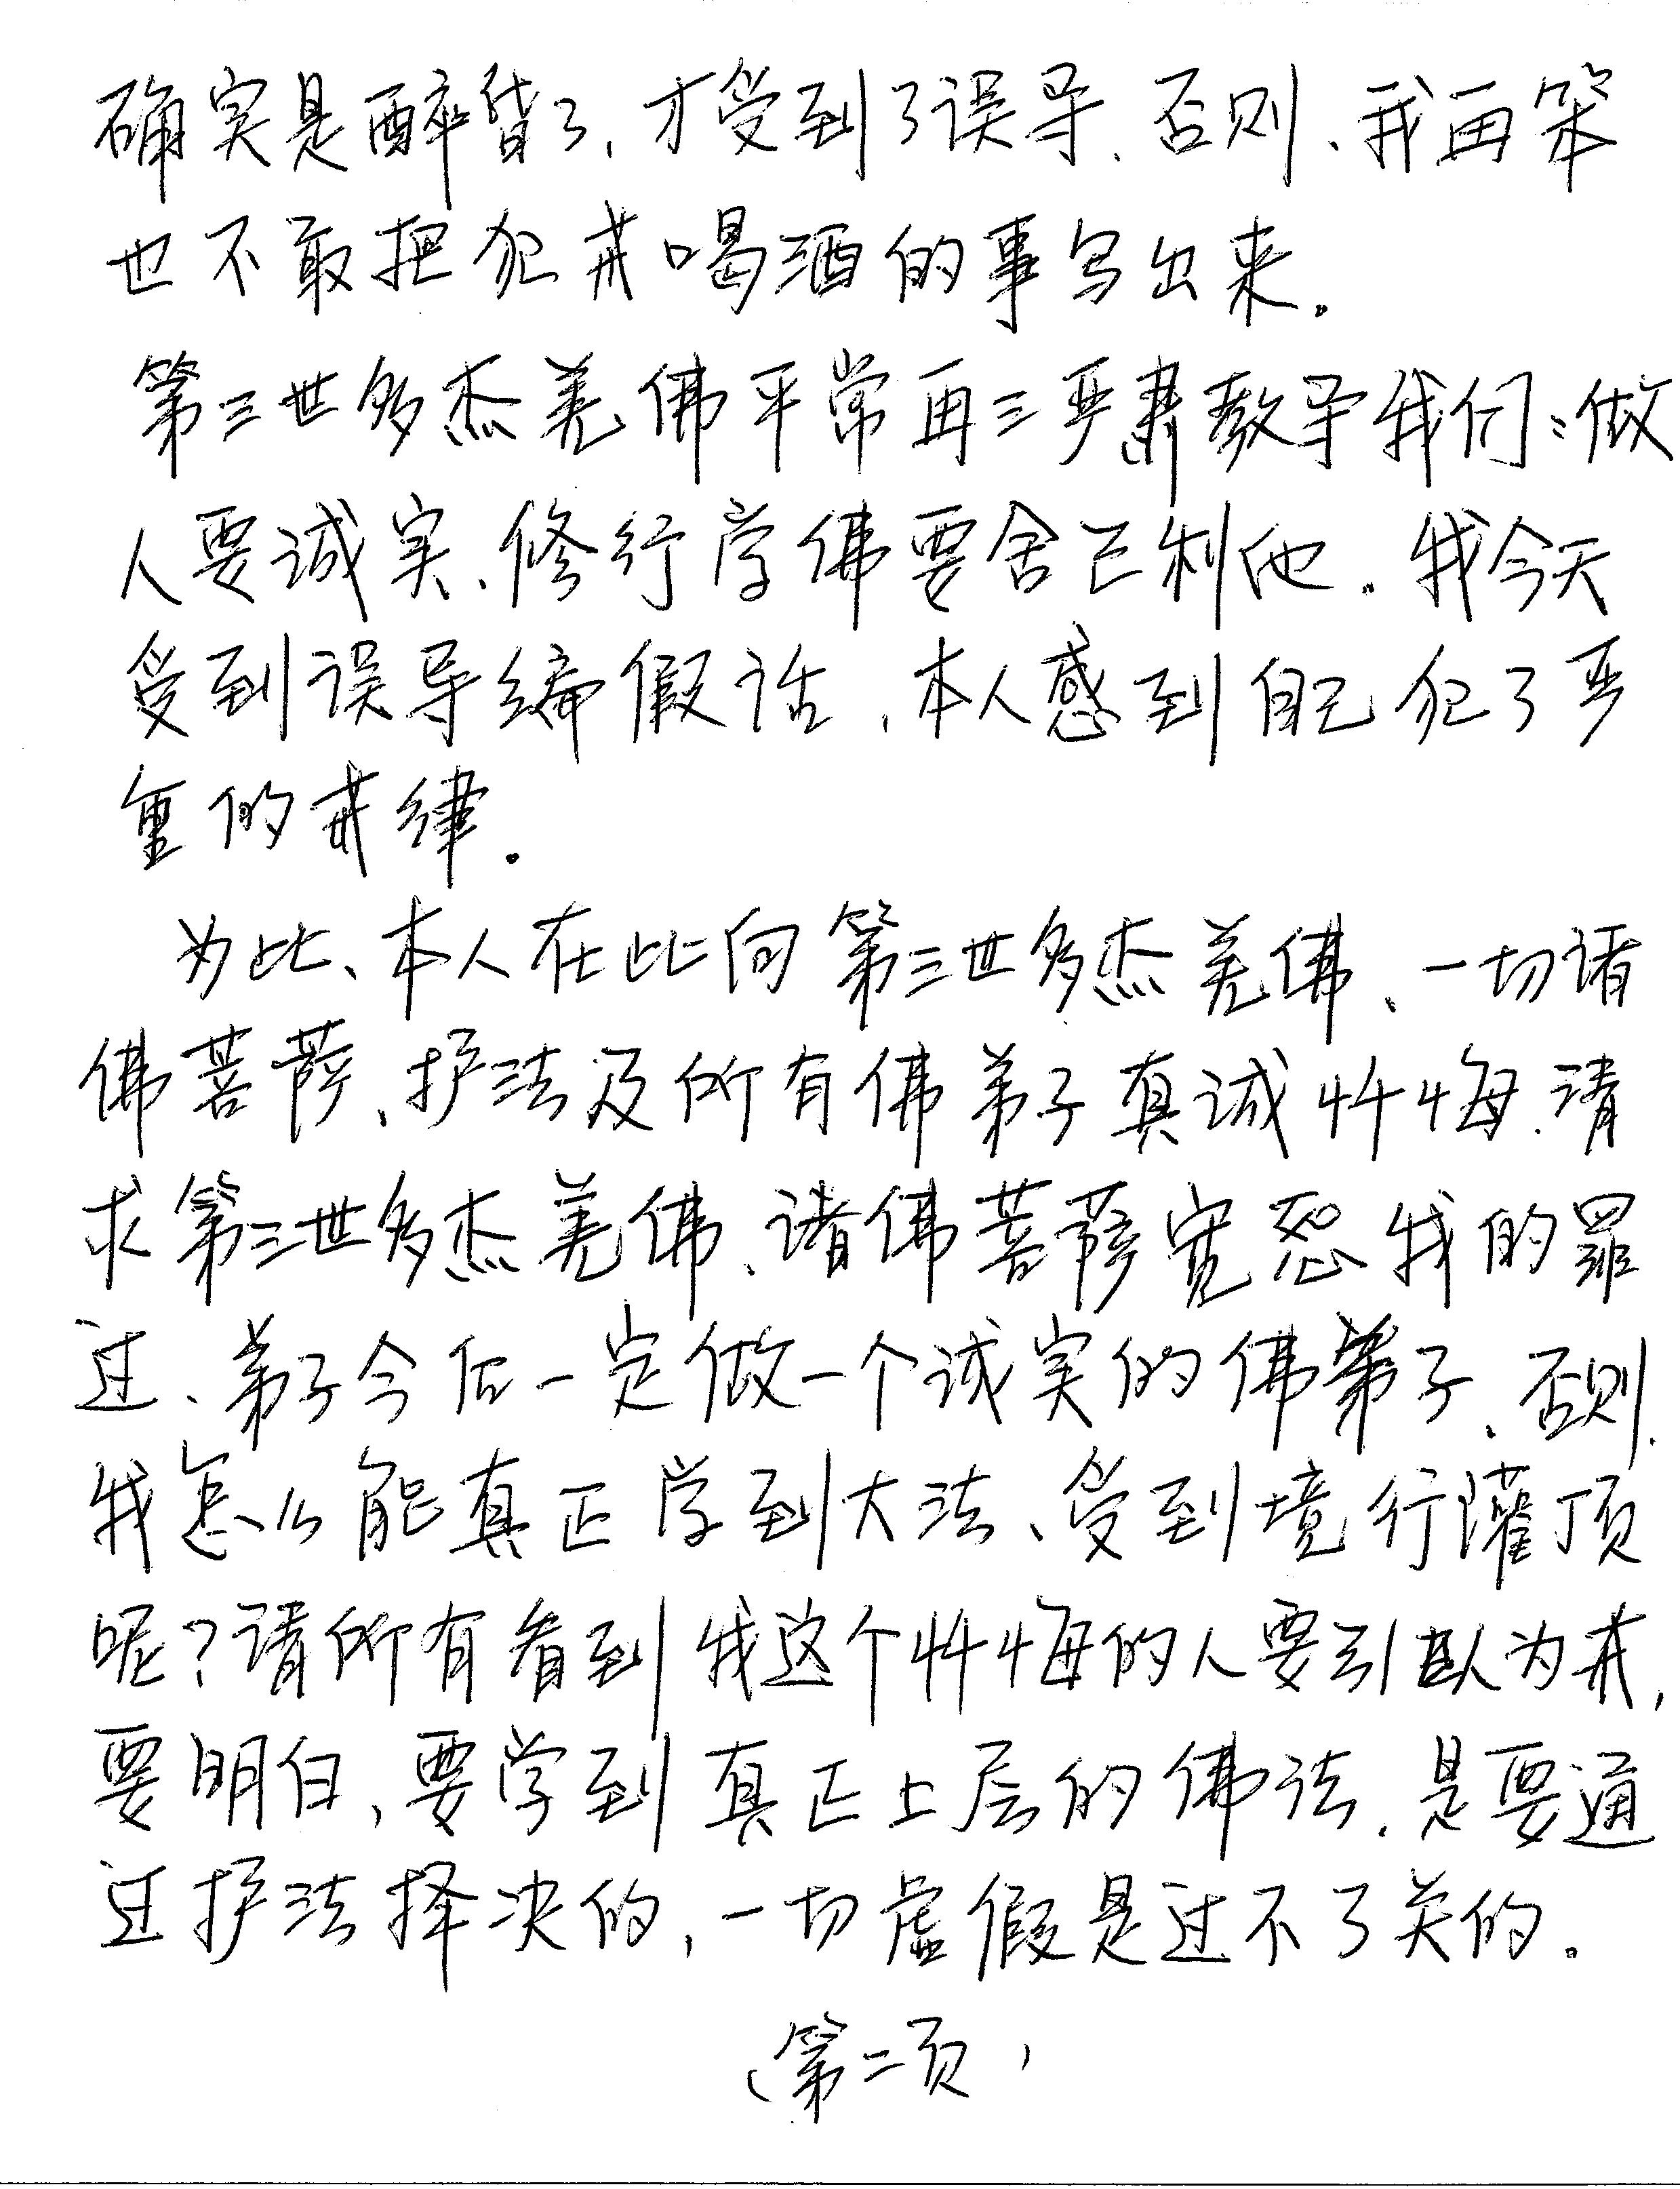 确实是醉昏了、才受到了误导、否则、我再笨
也不敢把犯戒喝酒的事写出来。
第三世多杰羌佛平常再三严肃教导我们：做
人要诚实、修行学佛要舍己利他。我今天
受到误导编假话、本人感到自己犯了严
重的戒律。
为此、本人在此向第三世多杰羌佛、一切诸
佛菩萨、护法及所有佛弟子真诚忏悔、请
求第三世多杰羌佛、诸佛菩萨宽恕我的罪
过、弟子今后一定做一个诚实的佛弟子、否则、
我怎么能真正学到大法、受到境行灌顶
呢？请所有看到我这个忏悔的人要引以为戒，
要明白、要学到真正上层的佛法、是要通
过护法择决的，一切虚假是过不了关的。
（第二页）